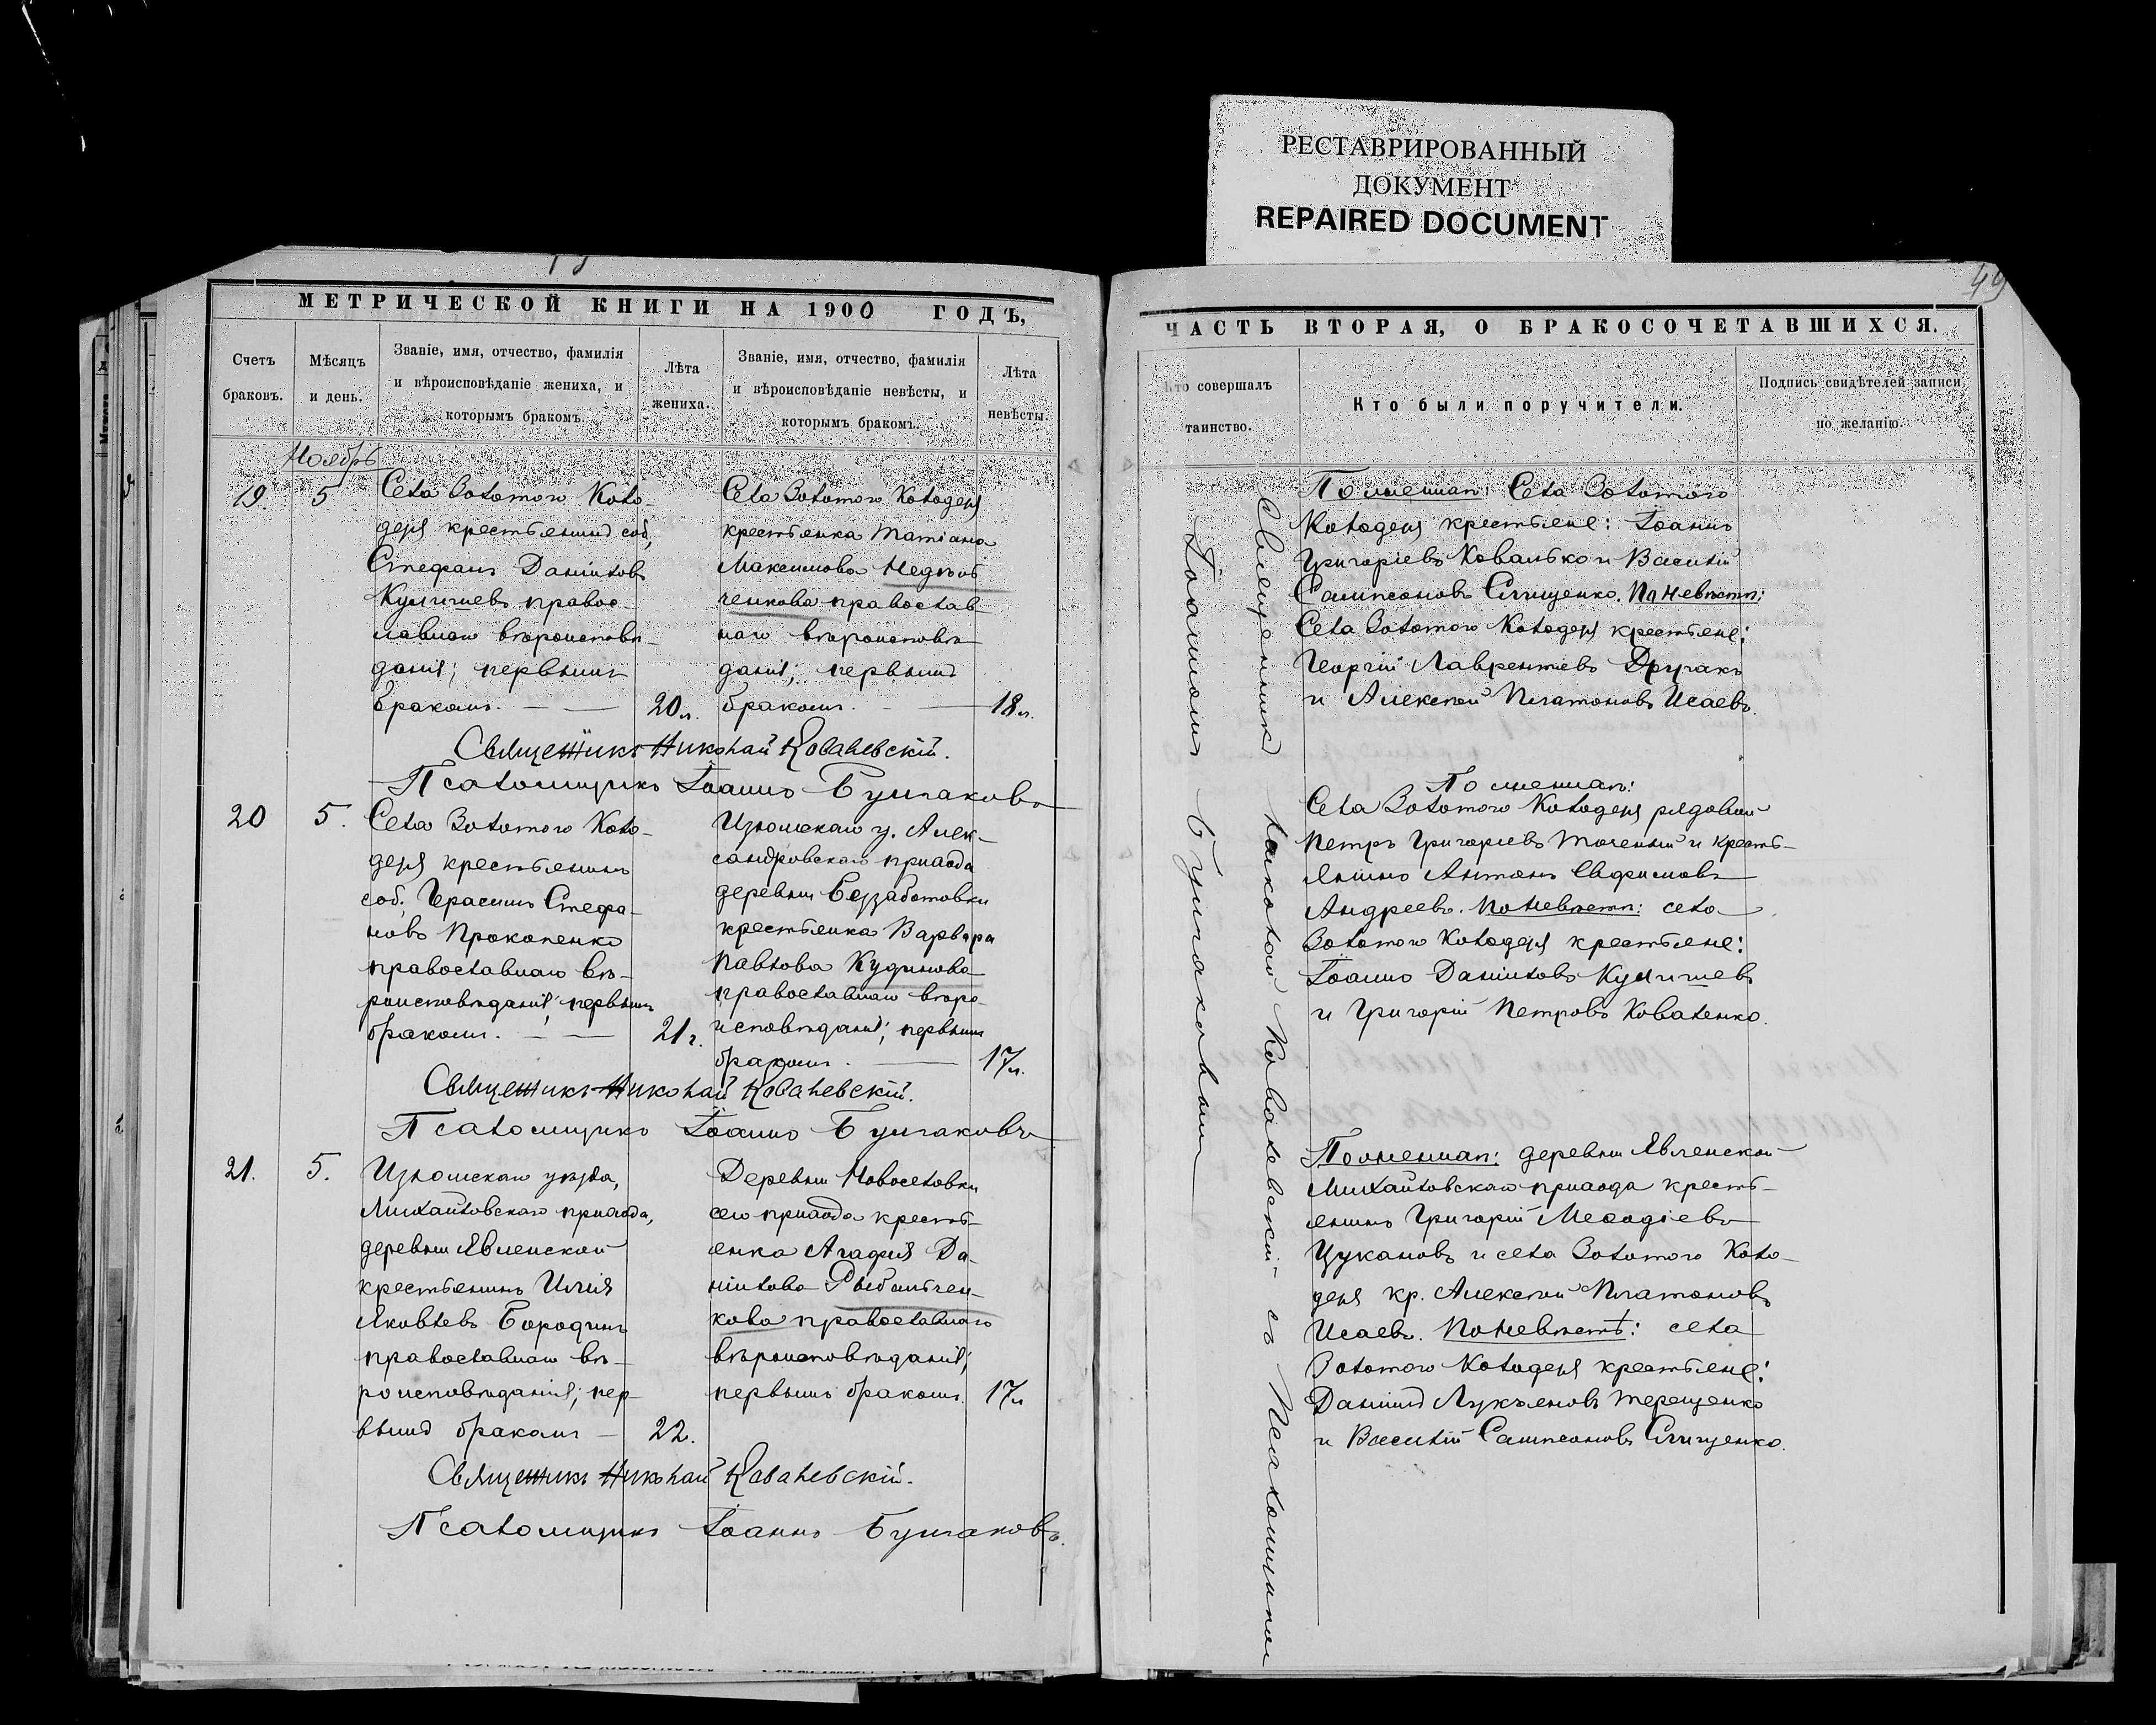 РЕСТАВРИРОВАННЫЙ
ДОКУМЕНТ
REPAIRED DOCUMENT
МЕТРИЧЕСКОЙ КНИГИ НА 1900 ГОДЪ,
Счетъ
браковъ.
Мѣсяцъ
и день.
Званіе, имя, отчество, фамилія
и вѣроисповѣданіе жениха, и
которымъ бракомъ.
Лѣта
жениха.
Званіе, имя, отчество, фамилія
и вѣроисповѣданіе невѣсты, и
которымъ бракомъ.
Лѣта
невѣсты.
Ноябрь
19.
5
Села Золотого Коло-
дезя крестьянинъ соб,
Стефанъ Даніиловъ
Кулишевъ правос-
лавнаго вѣроисповѣ-
данія; первымъ
бракомъ.
20 л.
Села Золотого Колодезя
крестьянка Татіана
Максимова
ченкова православ-
наго вѣроисповѣ-
данія; первымъ
бракомъ.
18 л.
Священникъ Николай Ковалевскій.
Псаломщикъ Іоаннъ Булгаковъ
20
5.
Села Золотого Коло-
дезя крестьянинъ
соб. Герасимъ Стефа-
новъ Прокопенко
православнаго вѣ-
роисповѣданія; первымъ
бракомъ.
21 г.
Изюмскаго у. Алек-
сандровскаго прихода
деревни Беззаботовки
крестьянка Варвара
Павлова Кудинова
православнаго вѣро-
исповѣданія; первымъ
бракомъ.
17 л.
Священникъ Николай Ковалевскій.
Псаломщикъ Іоаннъ Булгаковъ
21.
5.
Изюмскаго уѣзда,
Михайловскаго прихода,
деревни Явленской
крестьянинъ Илія
Яковлевъ Бородинъ
православнаго вѣ-
роисповѣданія; пер-
вымъ бракомъ
22.
Деревни Новоселовки
сего прихода кресть-
янка Агафія Да-
ніилова Рыбальчен-
кова православнаго
вѣроисповѣданія;
первымъ бракомъ.
17 л
Священникъ Николай Ковалевскій.
Псаломщикъ Іоаннъ Булгаковъ.
49
ЧАСТЬ ВТОРАЯ, О БРАКОСОЧЕТАВШИХСЯ.
Кто совершалъ
таинство.
Кто были поручители.
Подпись свидѣтелей записи
по желанію.
Священникъ Николай Ковалевскій съ Псаломщикомъ
Іоанномъ Булгаковымъ
По женихѣ: Села Золотого
Колодезя крестьяне: Іоаннъ
Григоріевъ Ковалько и Василій
Сампсоновъ Слищенко. По невѣстѣ:
Села Золотого Колодезя крестьяне:
Георгій Лаврентіевъ Дручакъ
и Алексѣй Платоновъ Исаевъ.
По женихѣ:
Села Золотого Колодезя рядовой
Петръ Григоріевъ Точеный и кресть-
янинъ Антонъ Евфимовъ
Андреевъ. По невѣстѣ: села
Золотого Колодезя крестьяне:
Іоаннъ Даніиловъ Кулишевъ
и Григорій Петровъ Коваленко.
По женихѣ: деревни Явленской
Михайловскаго прихода кресть-
янинъ Григорій Меѳодіевъ
Цукановъ и села Золотого Коло-
дезя кр. Алексѣй Платоновъ
Исаевъ. По невѣстѣ: села
Золотого Колодезя крестьяне:
Даніилъ Лукьяновъ Терещенко
и Василій Сампсоновъ Слищенко.